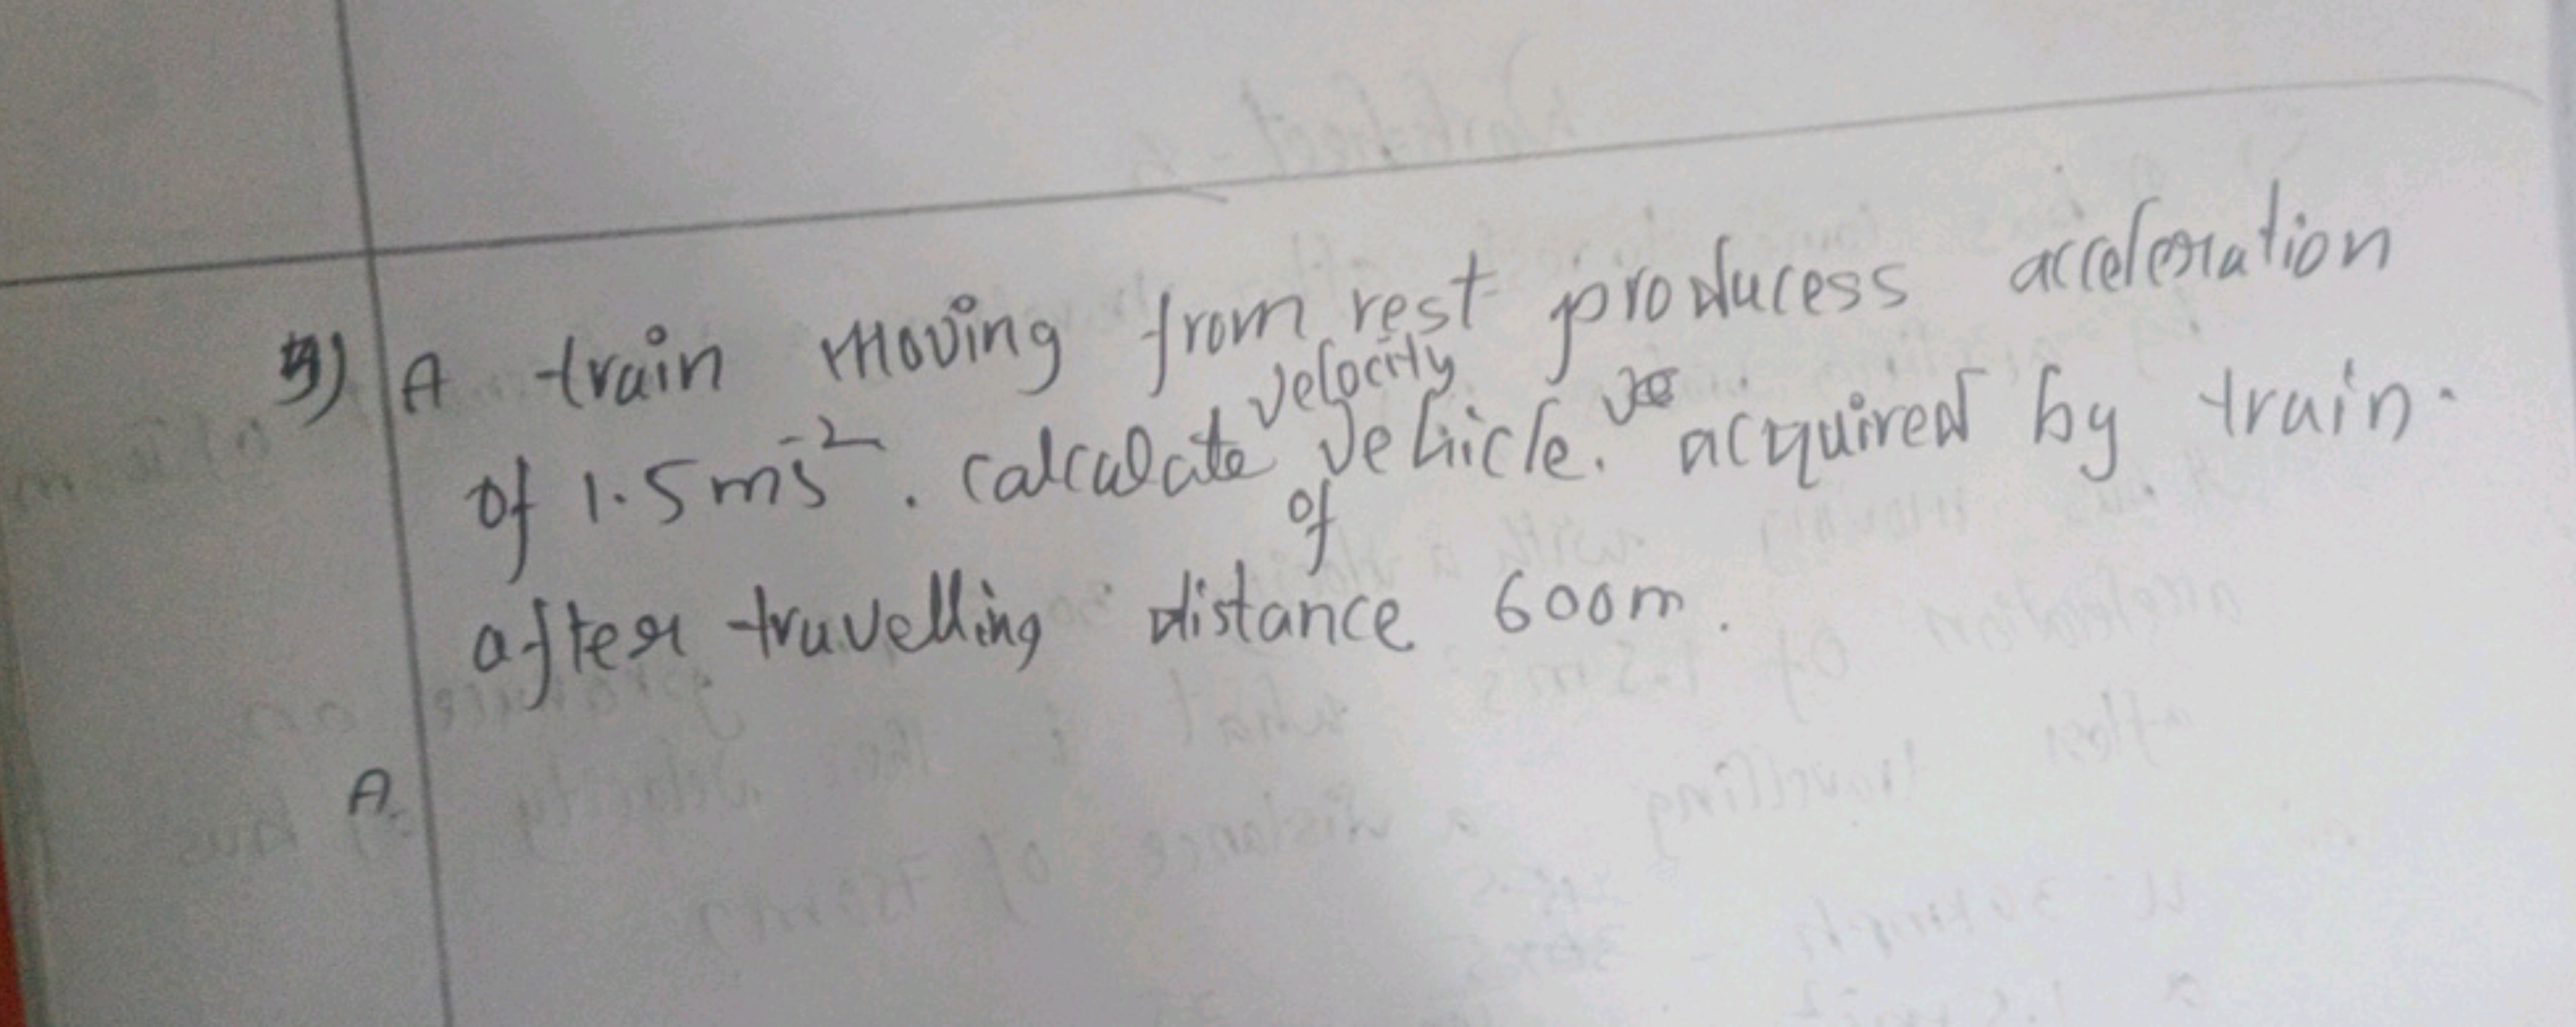 3) A train moving from rest producess acceleration
of 1.5 ms⁻². calculate velocity of vehicle. acquired by train.
after travelling distance 600m.
A.